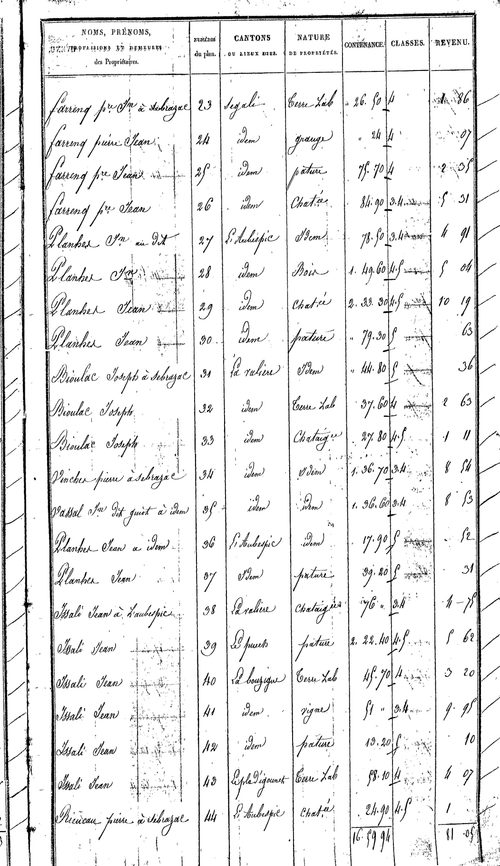 NOMS, PRÉNOMS, PROFESSIONS ET DEMEURES des Propriétaires. NUMÉROS du plan. CANTONS OU LIEUX DITS. NATURE DE PROPRIÉTÉS. CONTENANCE. CLASSES. REVENU.
farreng pre Jn à sebrazac 23 segali Terre Lab 26.50 4 1 86
farreng pierre Jean 24 idem grange 24 4 97
farreng pre Jean 25 idem pature 75.70 4 2 35
farreng pre Jean 26 idem Chatée 84.90 3.4 5 31
Planhes Jn au dit 27 L'Aubespic Idem 78.50 3.4 4 91
Planhes Jn 28 idem Bois 1.49.60 4.5 5 04
Planhes Jean 29 idem Chatée 2.33.30 4.5 10 19
Planhes Jean 30 idem pature 79.30 5 63
Bioulac Joseph à sebrazac 31 La valière Idem 44.80 5 36
Bioulac Joseph 32 idem Terre Lab 37.60 4 2 63
Bioulac Joseph 33 idem Chataigée 27.80 4.5 1 11
Vinches pierre à sebrazac 34 idem Idem 1.36.70 3.4 8 54
Vassal Jn dit guiot à idem 35 idem idm 1.36.60 3.4 8 53
Planhes Jean a idem 36 L'Aubespic idem 17.90 5 52
Planhes Jean 37 Idem pature 39.20 5 31
Issali Jean à Laubespic 38 La valière Chataigée 76 3.4 4 75
Issali Jean 39 pature 2.22.40 4.5 5 62
Issali Jean 40 La bouzigue Terre Lab 45.70 4 3 20
Issali Jean 41 idem vigne 51 3.4 9 95
Issali Jean 42 idem pature 13.20 5 10
Issali Jean 43 Terre Lab 58.10 4 4 07
pierre à sebrazac 44 L'Aubespic Chatée 24.90 4.5 1
16.59.94 81 05